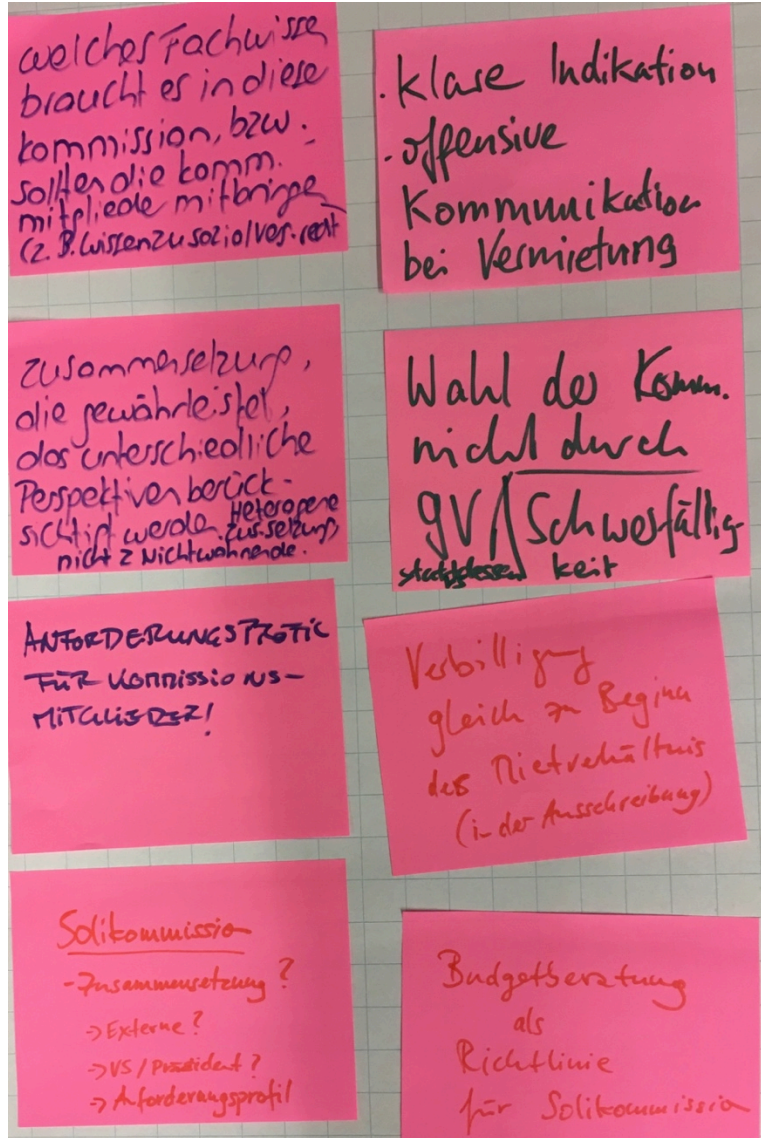 welches Fachwisse
braucht es in diese
kommission, bzw.
sollten die komm.
mitgliede mitbringe
(z.B. Wissen zu sozialvers.recht
Zusammensetzung,
die gewährleistet,
das unterschiedliche
Perspektiven berück-
sichtigt werde. Heterogene
Zus.setzung,
nicht 2 Nichtwohnende.
ANFORDERUNGSPROFIL
FÜR KOMMISSIONS-
MITGLIEDER!
Solikommission
- Zusammensetzung?
-> Externe?
-> VS / Präsident?
-> Anforderungsprofil
· klare Indikation
· offensive
Kommunikation
bei Vermietung
Wahl der Komm.
nicht durch
GV / Schwerfällig-
keit
Verbilligung
gleich zu Beginn
des Mietverhältnis
(in der Ausschreibung)
Budgetberatung
als
Richtlinie
für Solikommission